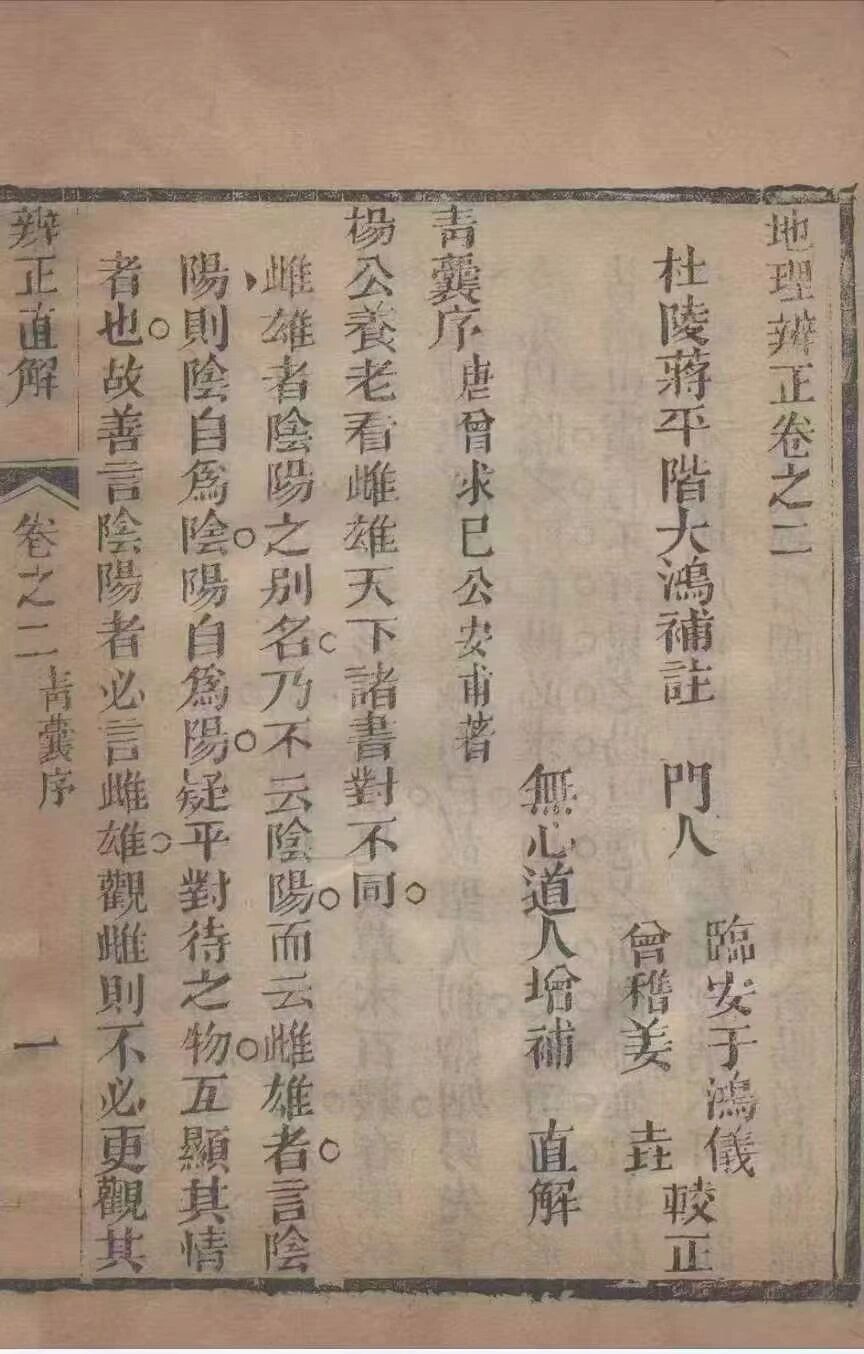 地理辨正卷之二
杜陵蔣平階大鴻補註　門人
臨安于鴻儀
曾稽姜垚
較正
無心道人增補　直解
青囊序　唐曾求己公安甫著
楊公養老看雌雄天下諸書對不同。
雌雄者陰陽之別名。乃不云陰陽。而云雌雄者。言陰
陽則陰自爲陰。陽自爲陽。疑乎對待之物。互顯其情
者也。故善言陰陽者必言雌雄。觀雌則不必更觀其
辨正直解　卷之二　青囊序　一